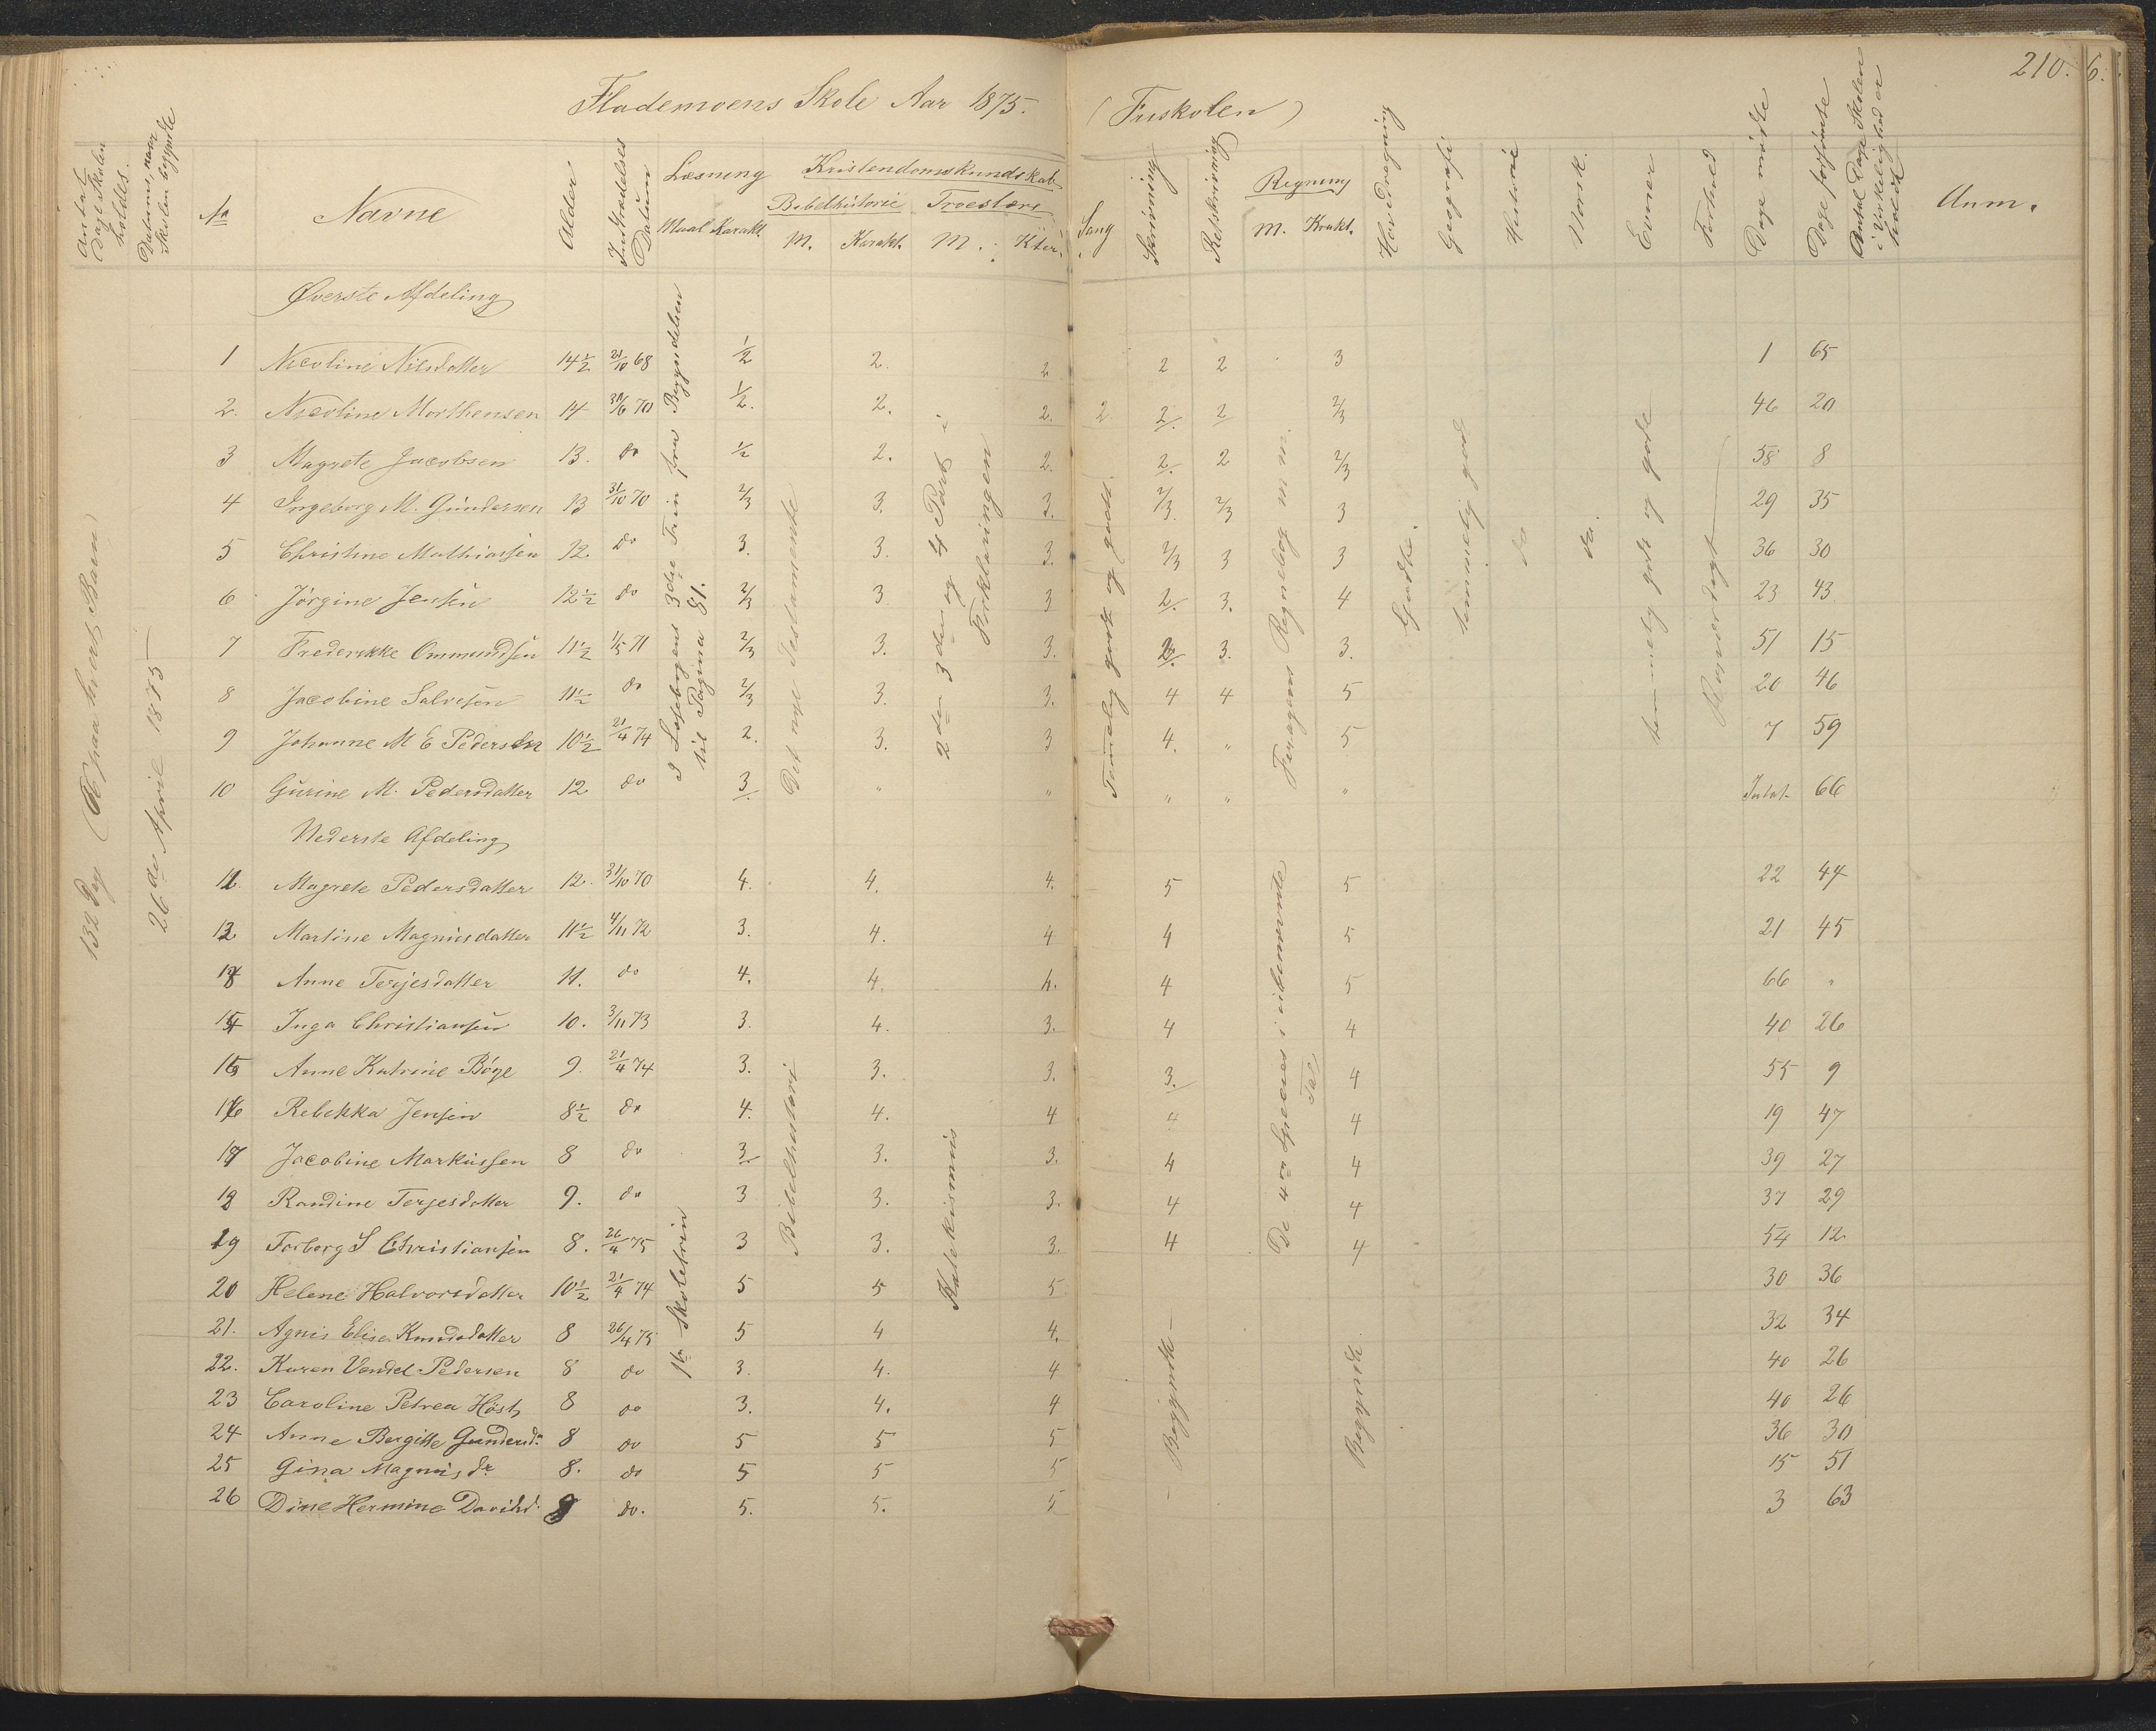 210. 6.
Flademoens Skole Aar 1875. (Fuskolen)
Antal Dage Skolen holdes.
Datum, naar Skolen begyndte
No
Navne
Alder
Indtrædelses Datum
Læsning
Maal Karakt.
Kristendomskundskab
Bibelhistorie Troeslære
M. Karakt. M. Kter.
Sang
Skrivning
Retskrivning
Regning
M. Krakt.
Geografi
Historie
Norsk.
Evner
Forhold
Dage mødte
Dage forsømte
Antal Dage Skolen i Virkelighed er
Anm.
132 Dage (66 paa hvert Barn)
26de April 1875
Øverste Afdeling
1 Nicoline Nilsdatter 14½ 21/10 68 ½ 2. 2 2 2 3 1 65
2. Nicoline Morthensen 14 30/6 70 ½. 2. 2. 2 2. 2 2/3 46 20
3 Magrete Jacobsen 13. do ½ 2. 2. 2. 2 2/3 58 8
4 Ingeborg M. Gundersen 13 31/10 70 2/3 3. 3. 2/3. 2/3 3 29 35
5 Christine Mathiassen 12. do 3. 3. 3. 2/3 3 3 36 30
6 Jørgine Jensen 12½ do 2/3 3 3 2. 3. 4 23 43
7 Frederikke Ommundsen 11½ 1/5 71 2/3 3. 3. 2. 3. 3. 51 15
8 Jacobine Salvesen 11½ do 2/3 3. 3. 4 4 5 20 46
9 Johanne M E Pedersen 10½ 21/4 74 2. 3. 3 4. " 5 7 59
10 Gurine M. Pedersdatter 12 do 3. " " " " " 66
I Læsebogens 3die Trin fra Begyndelsen til Pagina 81.
Det nye Testamente
2den 3den og 4 Part i Forklaringen
Temmelig godt og godt.
Regnebog m m.
Godt.
temmelig god
do
do.
temmelig gode og gode
Nederste Afdeling
11. Magrete Pedersdatter 12. 31/10 70 4. 4. 4. 5 5 22 44
12 Martine Magnusdatter 11½ 4/11 72 3. 4. 4 4 5 21 45
13 Anne Terjesdatter 11. do 4. 4. 4. 4 5 66 "
14 Inga Christiansen 10. 3/11 73 3. 4. 3. 4 4 40 26
15 Anne Katrine Böye 9. 21/4 74 3. 3. 3. 3. 4 55 9
16 Rebekka Jensen 8½ do 4. 4. 4 4 4 19 47
17 Jacobine Markussen 8 do 3. 3. 3. 4 4 39 27
18 Randine Terjesdatter 9. do 3 3. 3. 4 4 37 29
19 Torborg S Christiansen 8. 26/4 75 3 3. 3. 4 4 54 12
20 Helene Halvorsdatter 10½ 21/4 74 5 5 5 30 36
21. Agnis Elise Knudsdatter 8 26/4 75 5 4 4. 32 34
22. Karen Vendel Pedersen 8 do 3. 4. 4 40 26
23 Caroline Petrea Höst 8 do 3. 4. 4 40 26
24 Anne Bergitte Gundersdr 8 do 5 5 5 36 30
25 Gina Magnusdr 8. do 5 5 5 15 51
26 Dine Hermine Davidsd. 8 do. 5. 5. 5 3 63
1ste Skoletrin
Bibelhistorie
Katekismus
De 4re Species i ubenævnte Tal
Begyndt
Begyndt